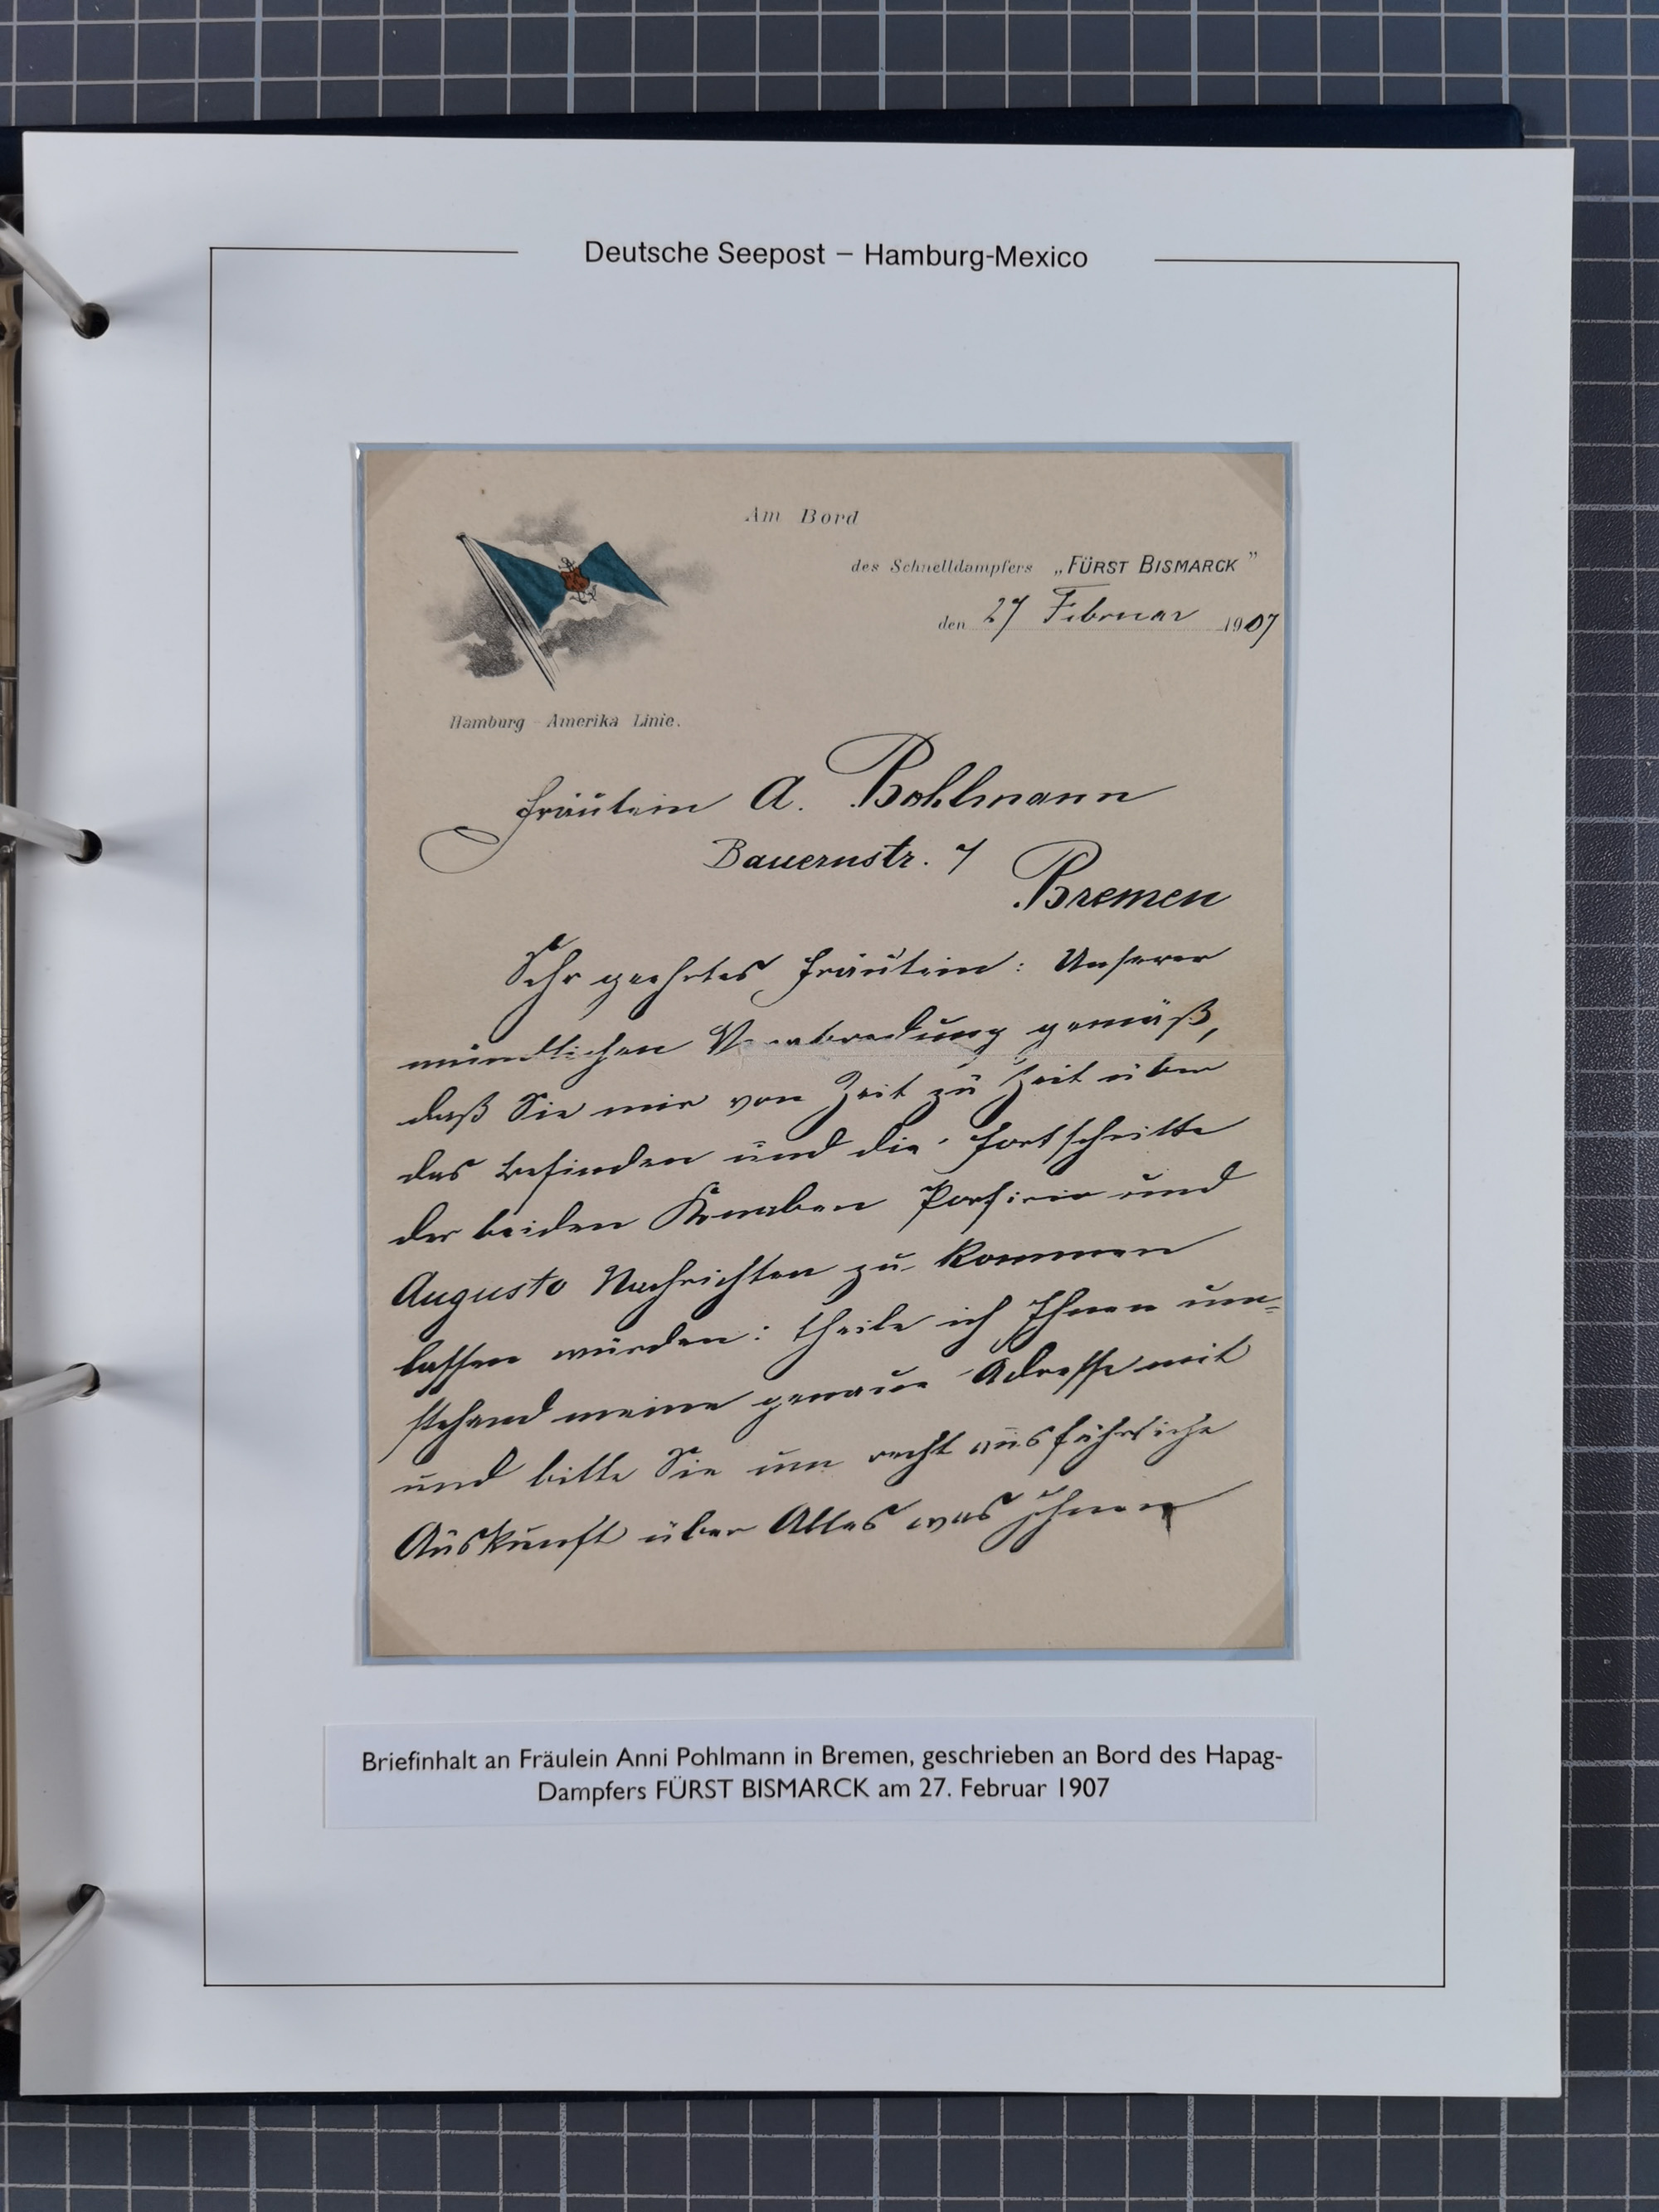 Deutsche Seepost – Hamburg-Mexico
Am Bord
des Schnelldampfers „FÜRST BISMARCK”
den 27 Februar 1907
Hamburg - Amerika Linie.
Fräulein A. Pohlmann
Bauernstr. 7
Bremen
Sehr geehrtes Fräulein: Unserer
mündlichen Verabredung gemäß,
daß Sie mir von Zeit zu Zeit über
das Befinden und die Fortschritte
der beiden Knaben Porfirio und
Augusto Nachrichten zu kommen
lassen würden: theile ich Ihnen um=
stehend meine genaue Adresse mit
und bitte Sie um recht ausführliche
Auskunft über Alles was Ihnen
Briefinhalt an Fräulein Anni Pohlmann in Bremen, geschrieben an Bord des Hapag-
Dampfers FÜRST BISMARCK am 27. Februar 1907